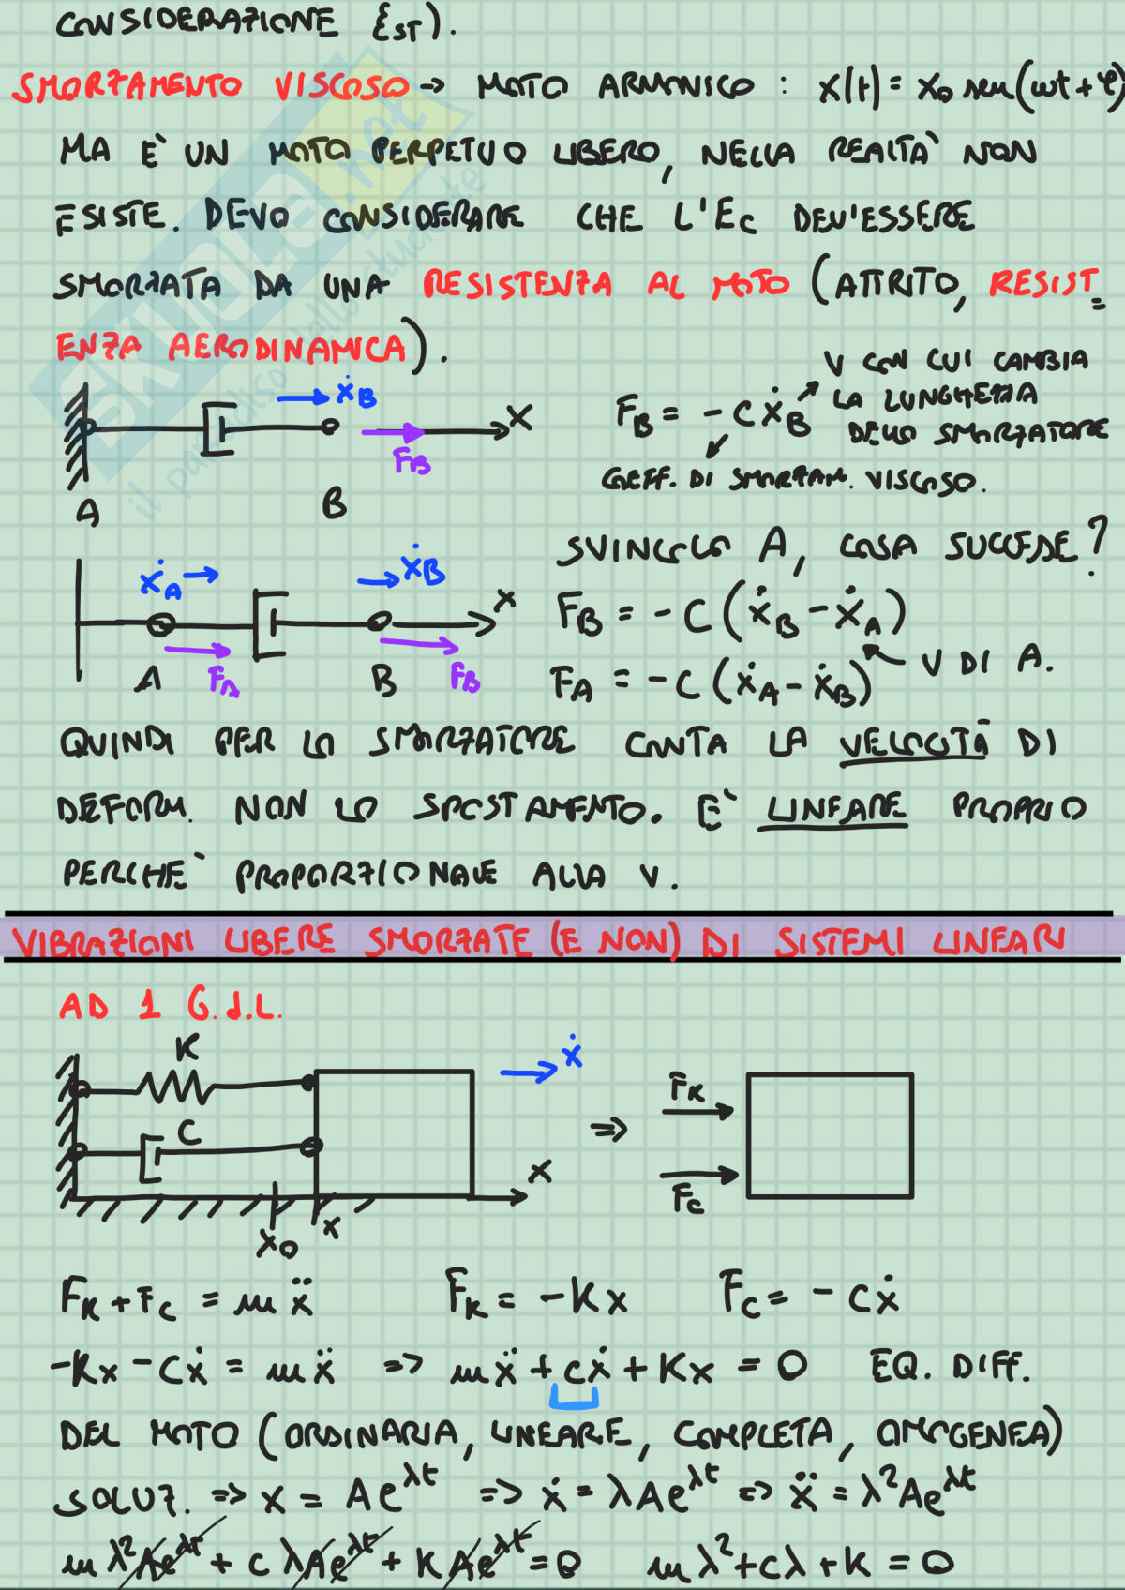 CONSIDERAZIONE ξST).
SMORZAMENTO VISCOSO → MOTO ARMONICO : x(t) = x0 sen(ωt + φ)
MA E' UN MOTO PERPETUO LIBERO, NELLA REALTA' NON
ESISTE. DEVO CONSIDERARE CHE L'Ec DEV'ESSERE
SMORZATA DA UNA RESISTENZA AL MOTO (ATTRITO, RESIST=
ENZA AERODINAMICA).
skuola.net
V CON CUI CAMBIA
LA LUNGHEZZA
DELLO SMORZATORE
ẋB
X
FB = - C ẋB
FB
COEFF. DI SMORZAM. VISCOSO.
A
B
SVINCOLO A, COSA SUCCEDE?
ẋA
ẋB
x
FB = - C (ẋB - ẋA)
V DI A.
A
FA
B
FB
FA = - C (ẋA - ẋB)
QUINDI PER LO SMORZATORE CONTA LA VELOCITÀ DI
DEFORM. NON LO SPOSTAMENTO. E' LINEARE PROPRIO
PERCHE' PROPORZIONALE ALLA V.
VIBRAZIONI LIBERE SMORZATE (E NON) DI SISTEMI LINEARI
AD 1 G.d.L.
K
ẋ
FK
C
⇒
X
FC
X0
X
FK + FC = m ẍ
FK = - K x
FC = - c ẋ
-Kx - Cẋ = m ẍ ⇒ mẍ + cẋ + Kx = 0 EQ. DIFF.
DEL MOTO (ORDINARIA, LINEARE, COMPLETA, OMOGENEA)
SOLUZ. ⇒ x = A e^λt ⇒ ẋ = λAe^λt ⇒ ẍ = λ²Ae^λt
mλ²Ae^λt + cλAe^λt + KAe^λt = 0 mλ² + cλ + K = 0